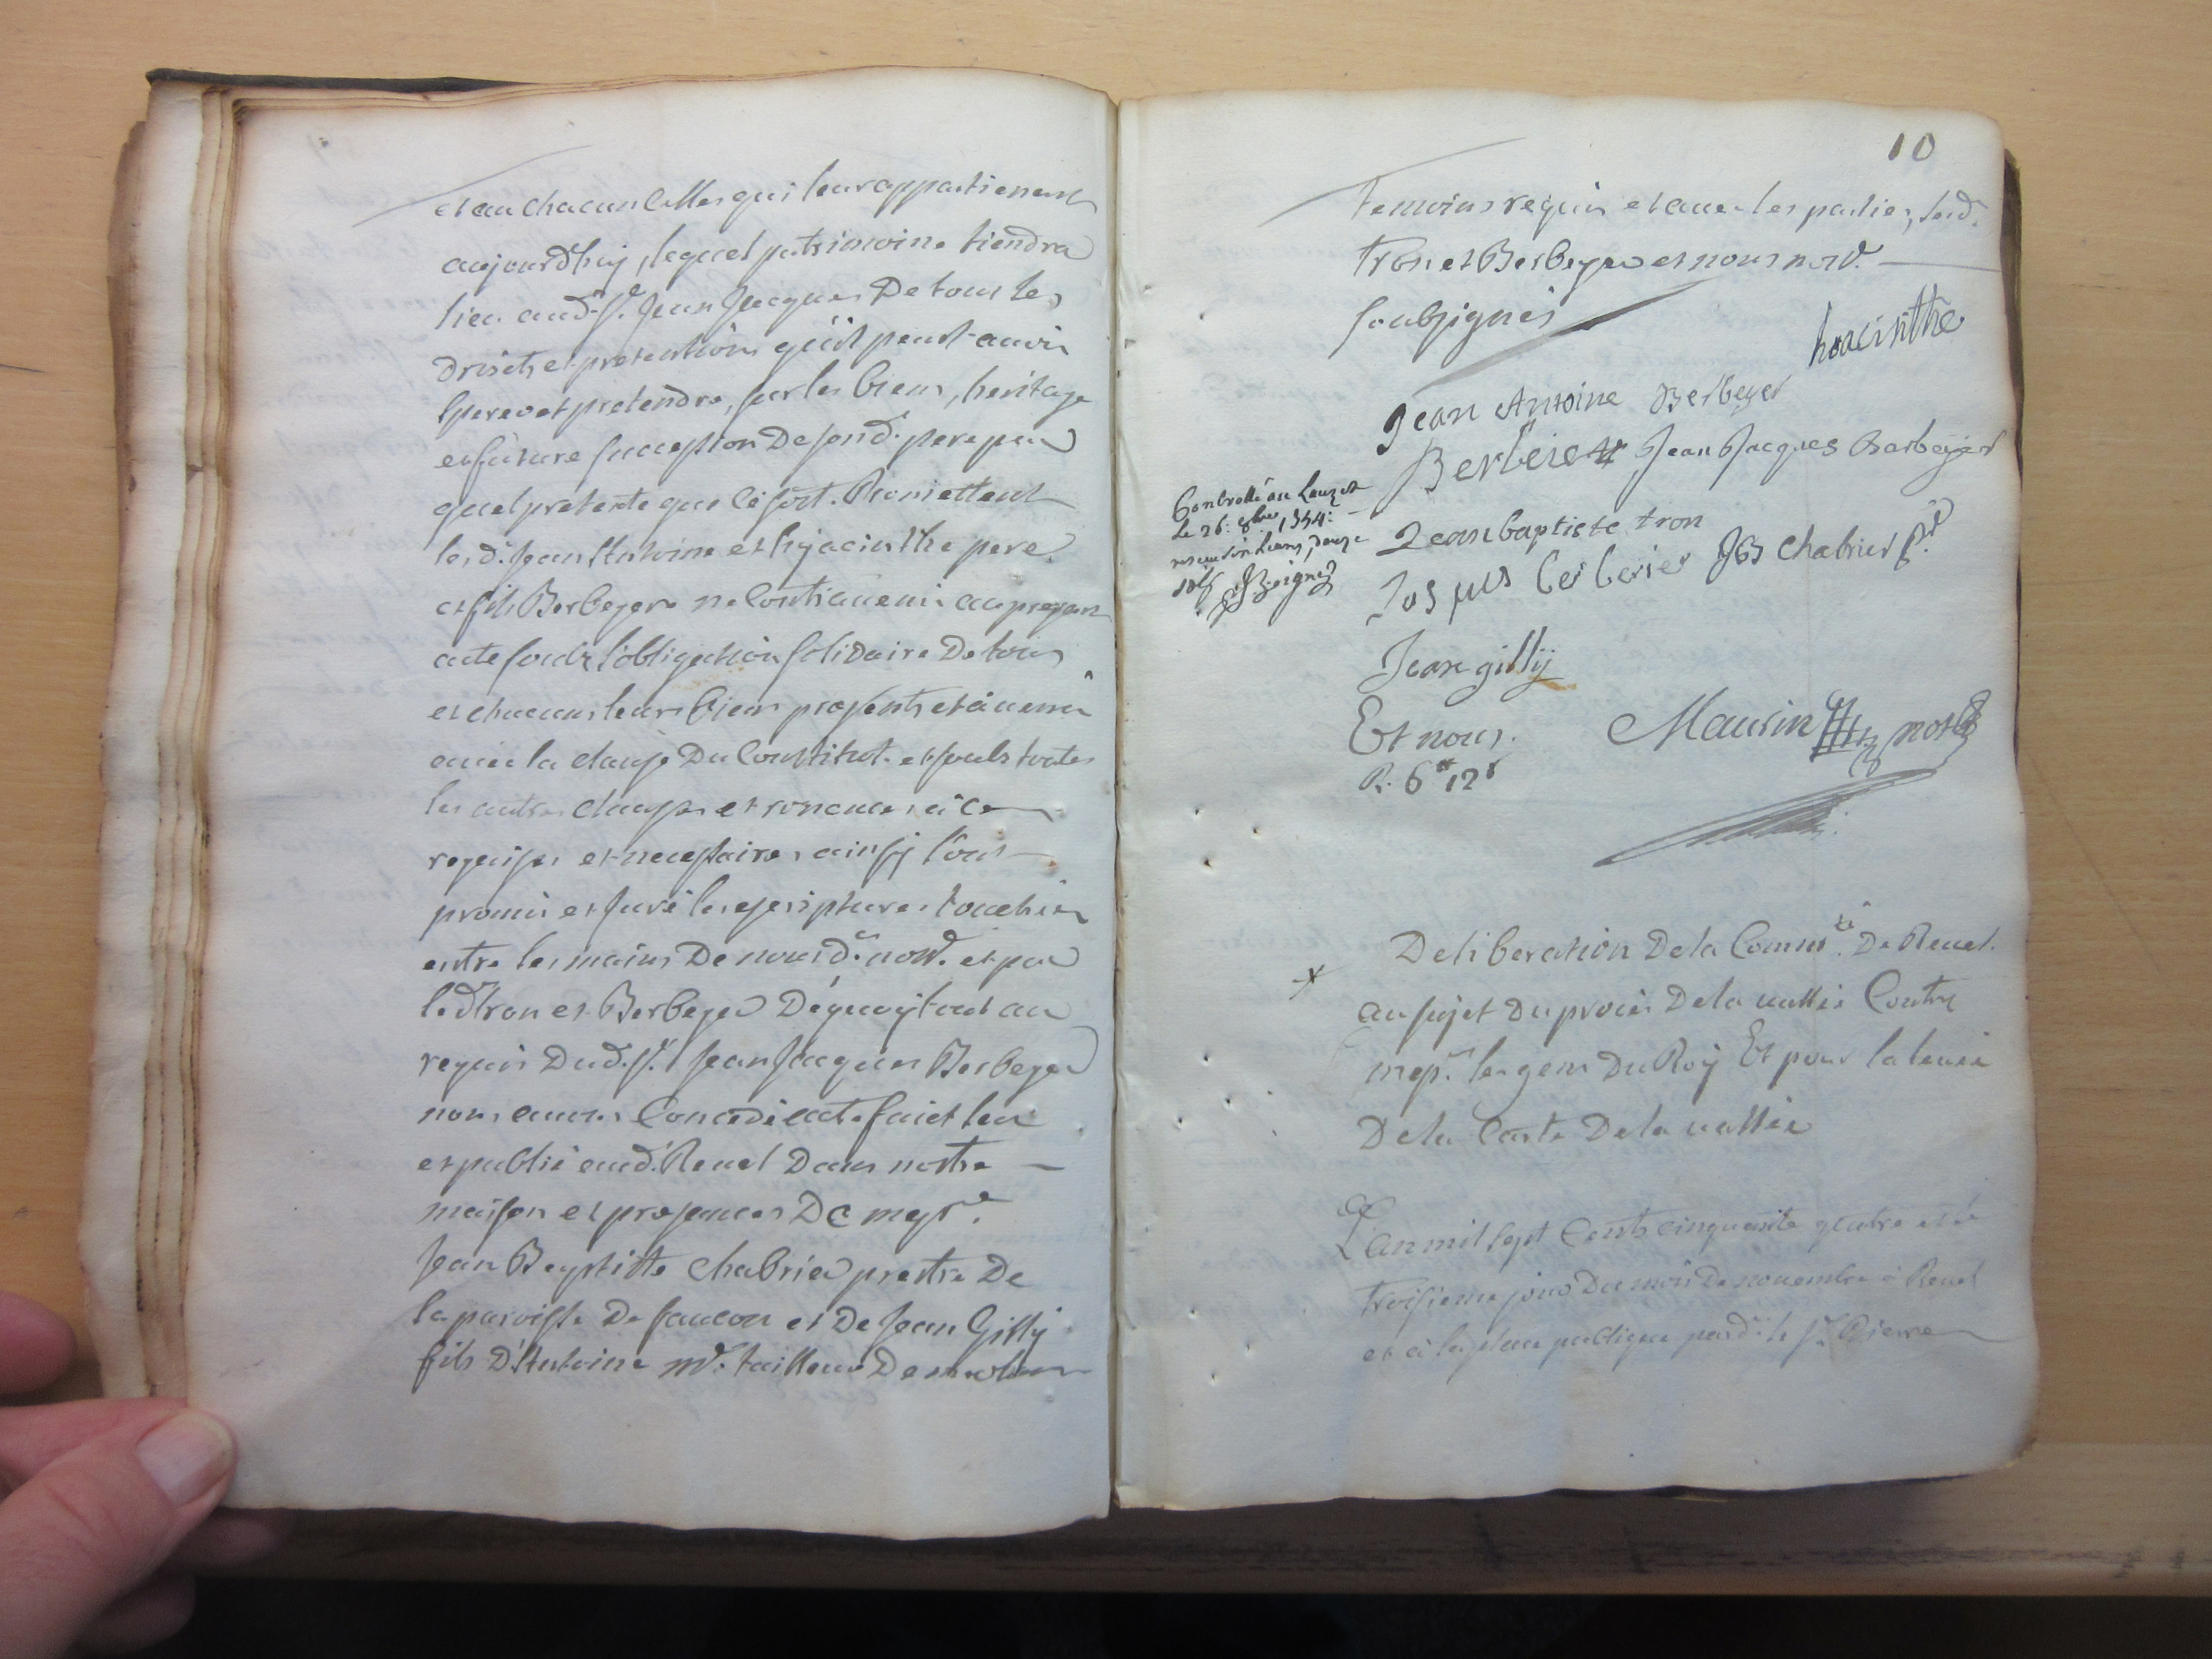 et au chacun celles qui leur appartienent
aujourdhuy, lequel patrimoine tiendra
lieu aud. Sr. Jean Jacques De tous les
droits et pretentions qu'il peut avoir
esperer et pretendre, sur les biens, heritage
et future succession De sond. pere pour
quel pretexte que ce soit. Promettent
lesd. Jean Antoine et hyacinthe pere
et fils Berbeyers ne Contravenir au present
acte soubz l'obligation solidaire De tous
et chacuns leurs biens presents et a venir
avec la clause Du Constitut. et soubs toutes
les autres clauses et renonces a ce
requises et necessaires ainsy l'ont
promis et juré les escriptures touchées
entre les mains De nousd. nore. et par
led tron et Berbeyer De quoy tout au
requis Dud. Sr. Jean Jacques Berbeyer
nous avons Concedé acte faict leu
et publié aud. Revel Dans nostre
maison et presences De messre.
Jean Baptiste Chabrier prestre De
la paroisse De faucon et De Jean Gilly
fils D'Antoine me. tailleur De
10
temoins requis et avec les parties, lesd.
tron et Berbeyer et nous nore.
soubsignés
hoacinthe
Jean Antoine Berbeyer
Berbeier Jean Jacques Barbeyer
Controllé au Lauzet
Le 26: 8bre 1754:
receu six livres, douze
sols
Jean baptiste tron
Jacques berberier JB Chabrier ptre
Jean gilly
Et nous. Maurin nore
R. 6tt 12s
Deliberation De la Commté. De Revel.
au sujet Du procés De la vallée Contre
messrs. les gens Du Roy Et pour la levée
De la Carte De la vallée
L'an mil sept Cents cinquante quatre et le
troisieme jour Du mois De novembre à Revel
et à la place publique pard. le Sr. Pierre